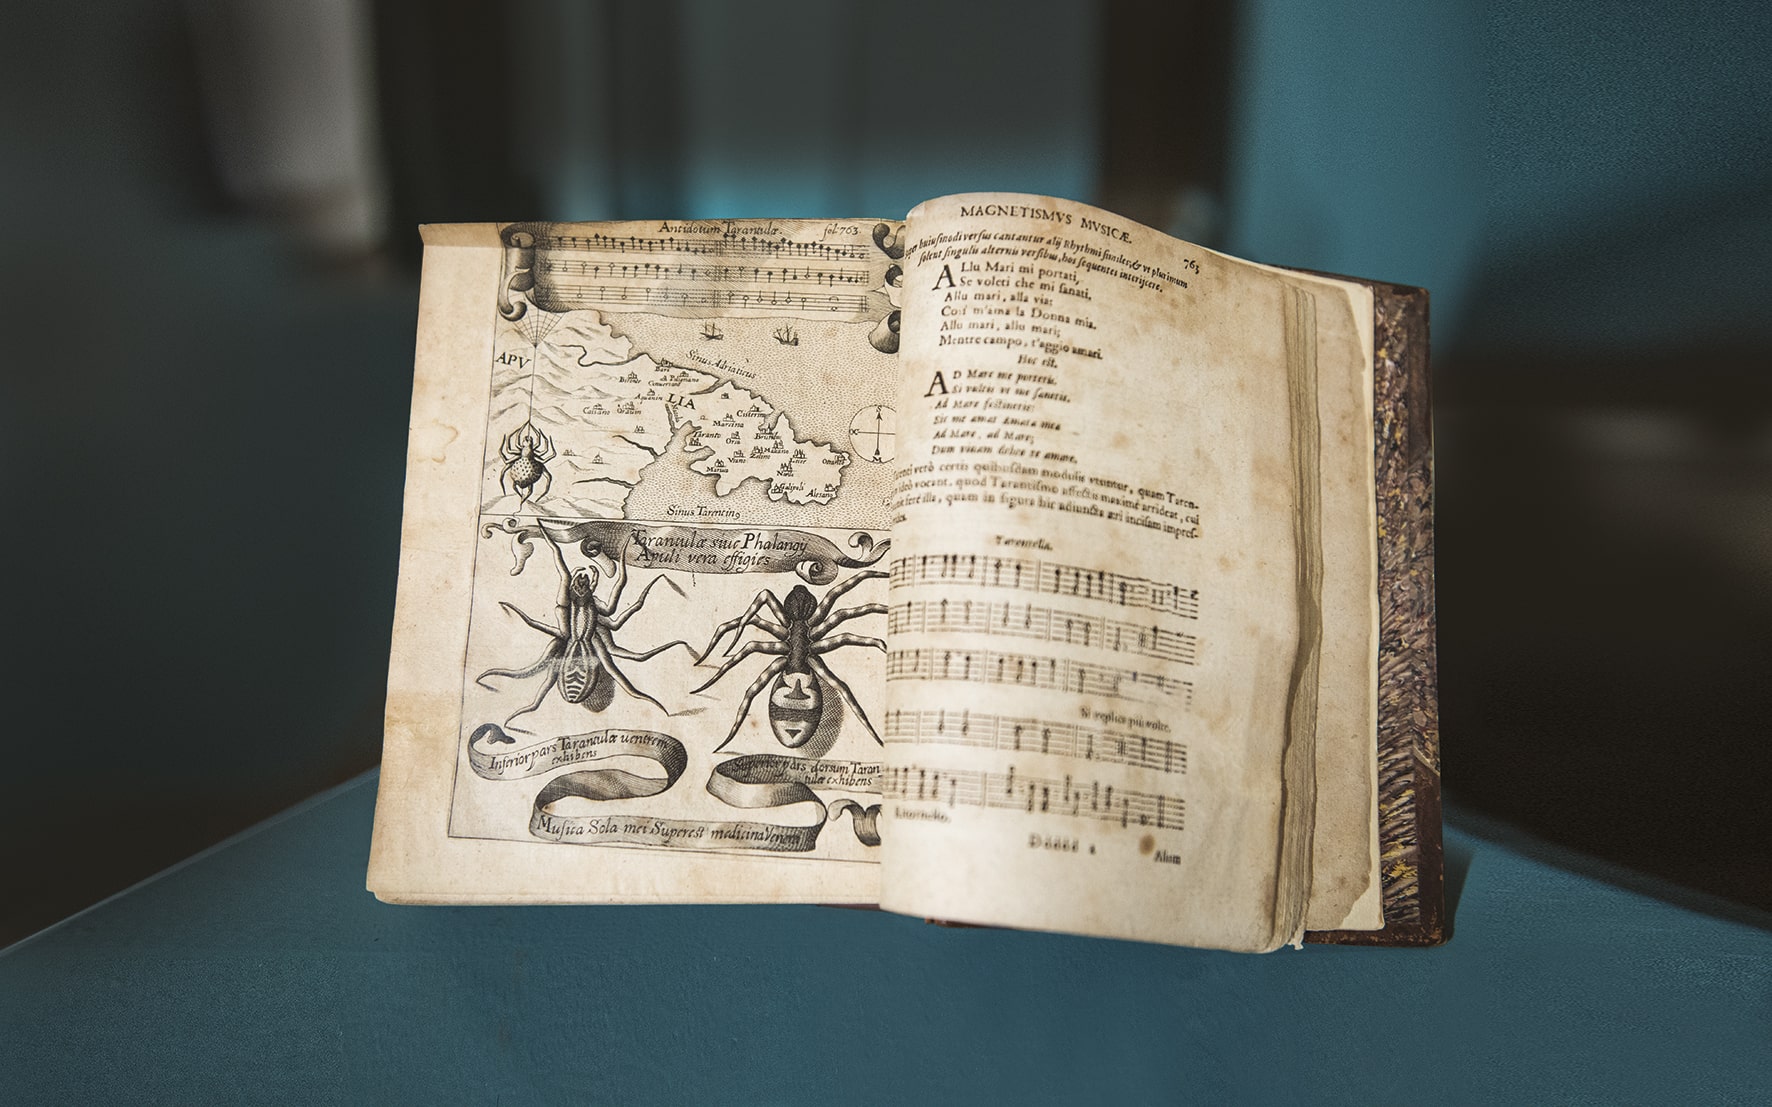 Antidotum Tarantulæ. fol. 763.
APV
LIA
Sinus Adriaticus
Bari
Polignano
Bitonte
Conversano
Cassano
Cisternin
Martina
Taranto
Oria
Otranto
Nardo
Gallipoli
Alesano
Sinus Tarentino
S
M
Tarantulæ siue Phalangÿ
Apuli vera effigies
Inferior pars Tarantulæ uentrem
exhibens
Superior pars dorsum Taran
tulæ exhibens
Musica Sola mei Superest medicina Veneni
MAGNETISMVS MVSICÆ.
763
huiusmodi versus cantantur alij Rhythmi similes, & vt plurimum
solent singulis alternis versibus, hos sequentes interijcere.
ALlu Mari mi portati,
Se voleti che mi sanati,
Allu mari, alla via:
Cosi m'ama la Donna mia.
Allu mari, allu mari;
Mentre campo, t'aggio amari.
Hoc est.
AD Mare me portetis,
Si vultis vt me sanetis.
Ad Mare festinetis:
Sic me amat Amata mea
Ad Mare, ad Mare;
Dum viuam debeo te amare.
verò certis quibusdam modulis vtuntur, quam Taren-
ideò vocant, quod Tarantismo affectis maximè arrideat, cui
ferè illa, quam in figura hic adiuncta æri incisam impres-
Tarantella.
Si replica più volte.
Ritornello.
Ddddd 2
Alium